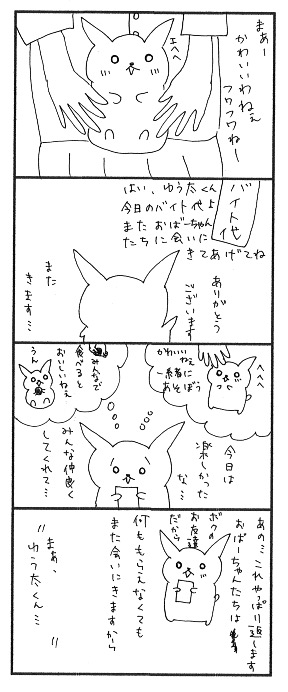 まぁー
かわいいわねぇ
フワフワねー
エヘヘ
バイト代
はい、ゆう太くん
今日のバイト代よ
またおばーちゃん
たちに会いに
きてあげてね
ありがとう
ございます
また
きます…
へへへ
かわいい
ねぇ
一緒に
あそぼう
みんなで
食べると
おいしいねぇ
うん
今日は
楽しかった
な…
みんな仲良く
してくれて…
あの…これやっぱり返します
おばーちゃんたちは
ボクの
お友達
だから
何ももらえなくても
また会いにきますから
〝まぁ、
ゆう太くん…〟